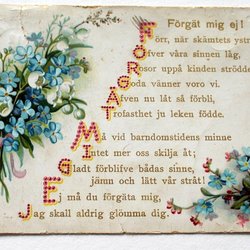 Förgät mig ej!
Förr, när skämtets
Öfver våra sinnen låg,
Rosor uppå kinden strödde
Goda vänner voro vi.
Äfven nu låt så förbli,
Trofasthet ju leken födde.
Må vid barndomstidens minne
Intet mer oss skilja åt;
Gladt förblifve bådas sinne,
jämn och lätt vår stråt!
Ej må du förgäta mig,
Jag skall aldrig glömma dig.